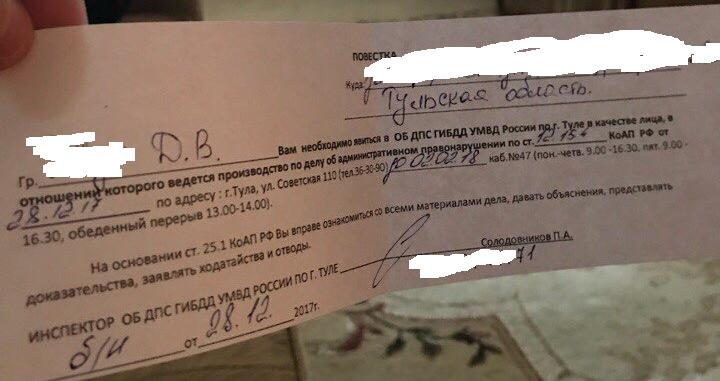 ПОВЕСТКА
Куда:
Тульская область.
Гр. Д.В. Вам необходимо явиться в ОБ ДПС ГИБДД УМВД России по г. Туле в качестве лица, в
отношении которого ведется производство по делу об административном правонарушении по ст. 12.15.4 КоАП РФ от
28.12.17 по адресу : г.Тула, ул. Советская 110 (тел.36-30-90) до 02.02.18 каб.№47 (пон.-четв. 9.00 -16.30, пят. 9.00 -
16.30, обеденный перерыв 13.00-14.00).
На основании ст. 25.1 КоАП РФ Вы вправе ознакомиться со всеми материалами дела, давать объяснения, представлять
доказательства, заявлять ходатайства и отводы.
ИНСПЕКТОР ОБ ДПС ГИБДД УМВД РОССИИ ПО Г. ТУЛЕ Солодовников П.А.
71
б/н от 28.12. 2017г.